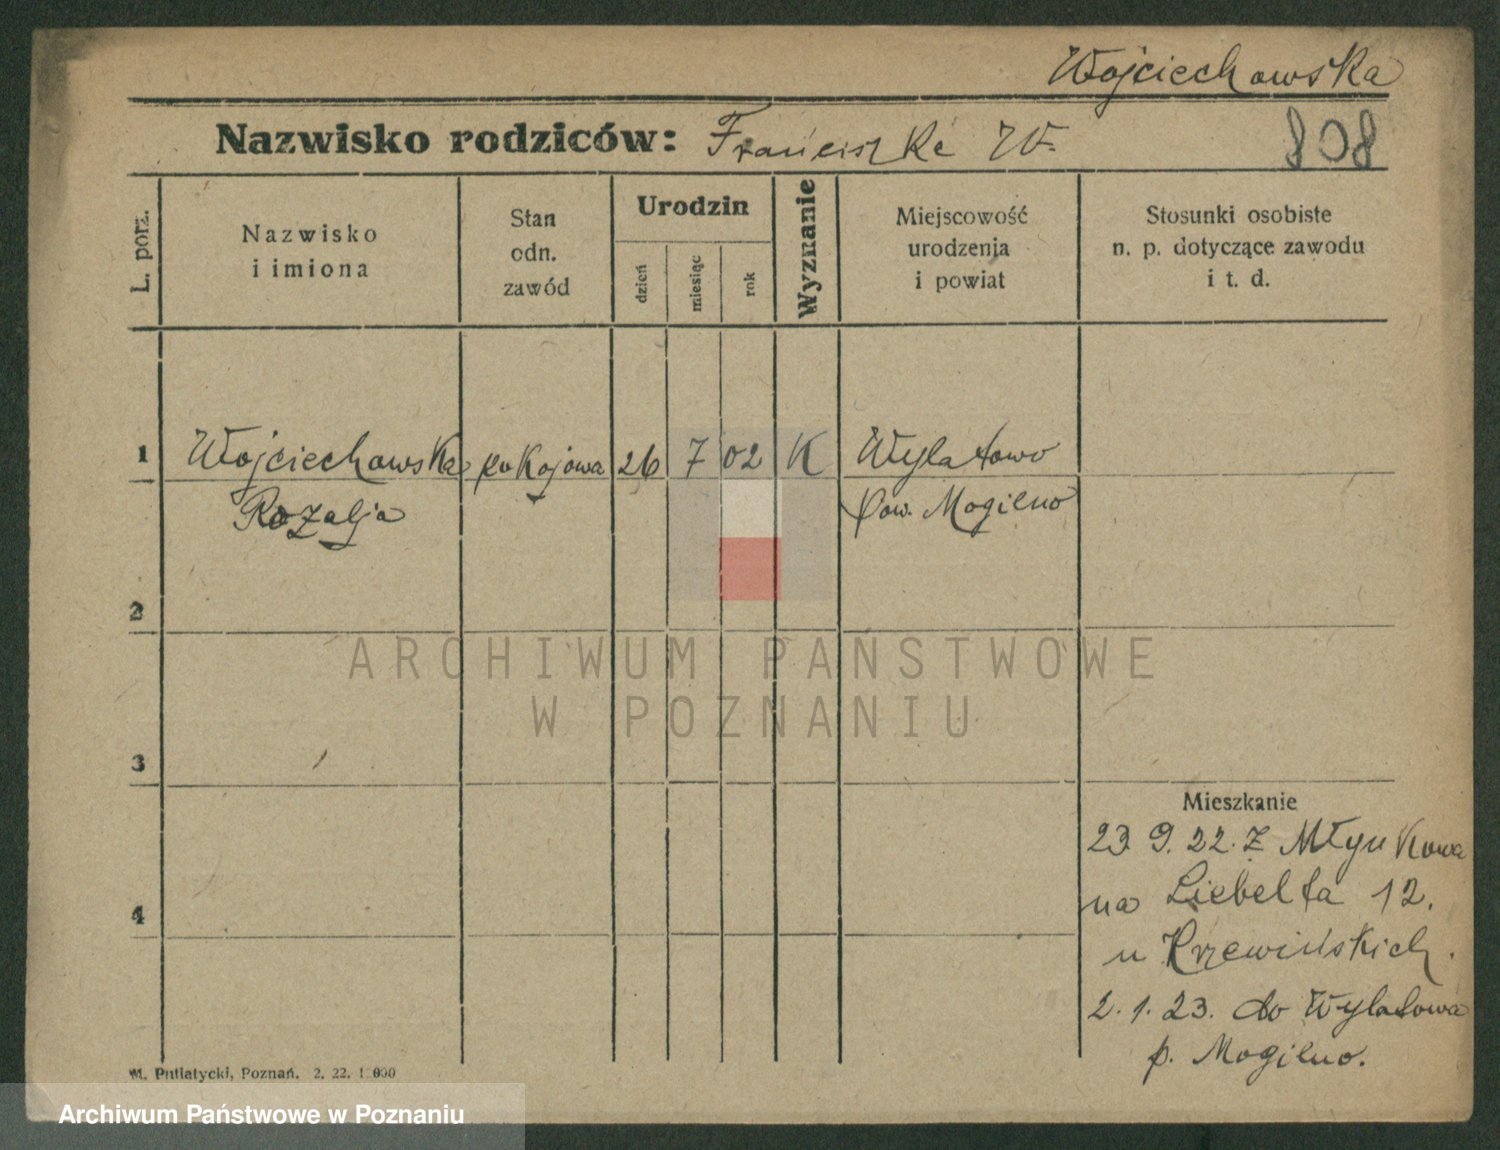 Wojciechowska
Nazwisko rodziców: Franciszka W. 808
L. porz.
Nazwisko
i imiona
Stan
odn.
zawód
Urodzin
dzień
miesiąc
rok
Wyznanie
Miejscowość
urodzenia
i powiat
Stosunki osobiste
n. p. dotyczące zawodu
i t. d.
1 Wojciechowska pokojowa 26 7 02 K Wylatowo
Rozalja pow. Mogilno
2
ARCHIWUM PAŃSTWOWE
W POZNANIU
3
Mieszkanie
23. 9. 22. z Młynkowa
na Liebelta 12.
4
u Krzewińskich.
2. 1. 23. do Wylatowa
p. Mogilno.
M. Putiatycki, Poznań. 2. 22. 1 000
Archiwum Państwowe w Poznaniu